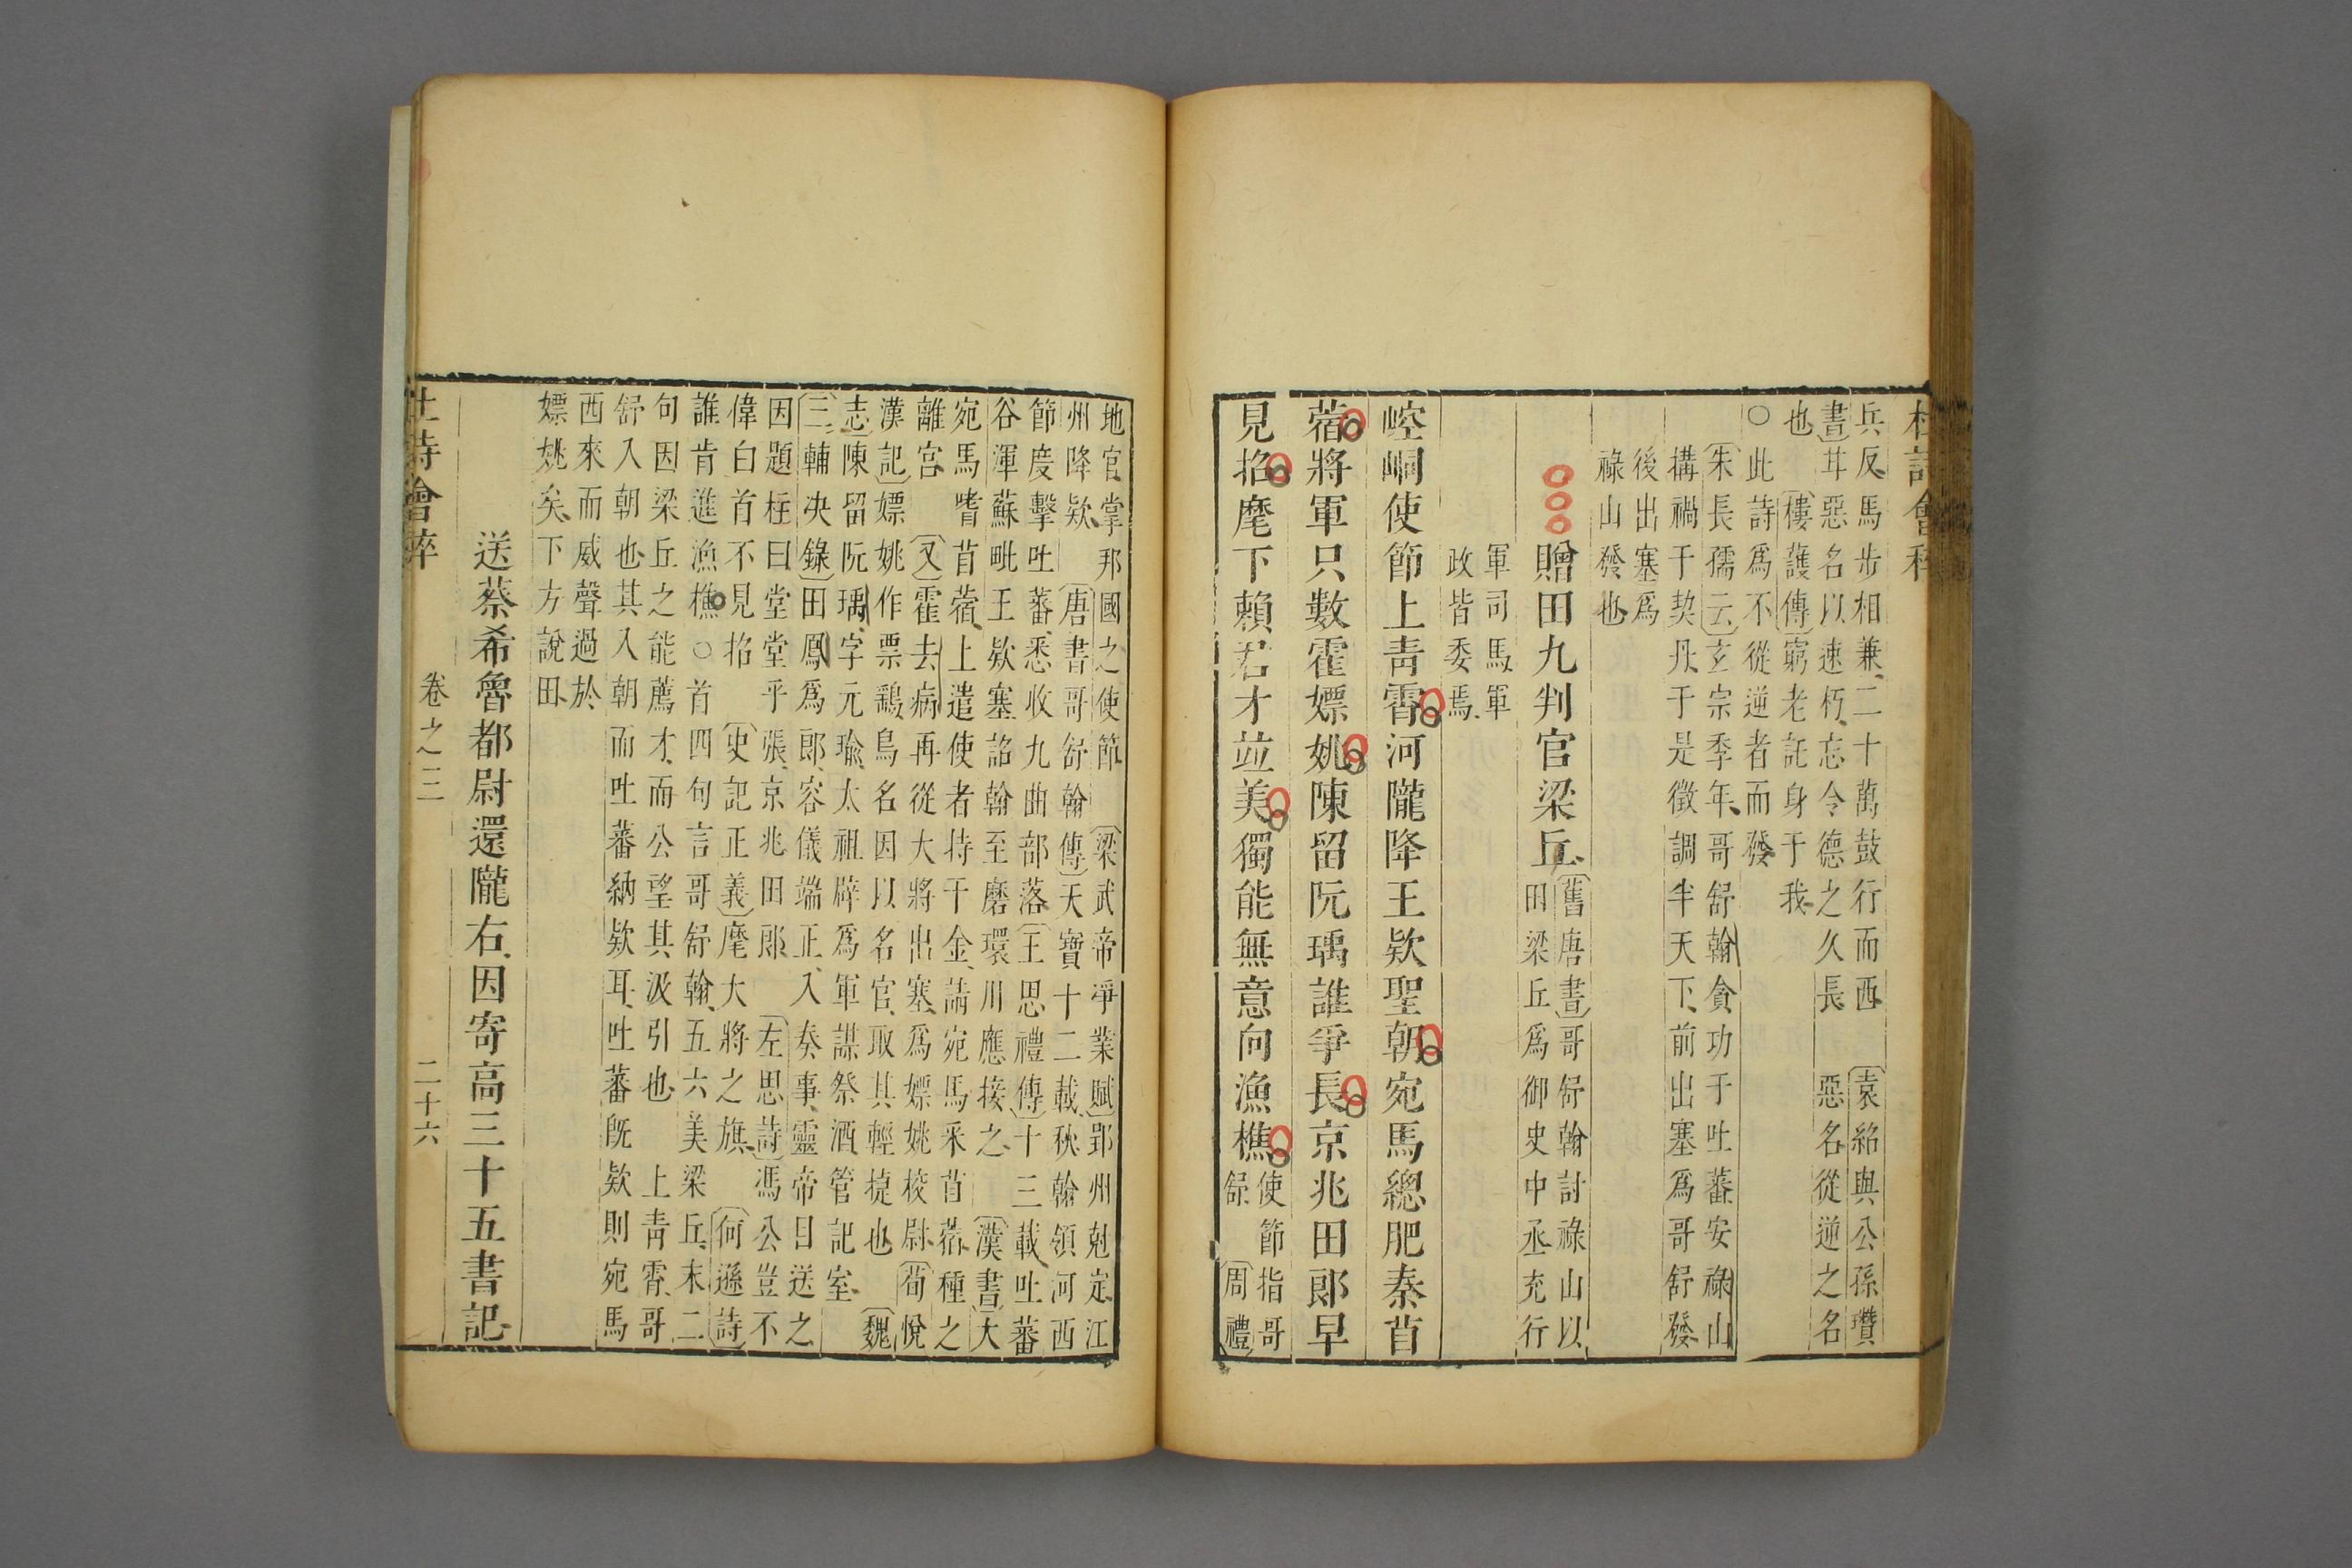 杜詩會稡
兵反馬步相兼二十萬鼓行而西〔袁紹與公孫瓚
書〕苷惡名以速朽忘令德之久長　惡名從逆之名
也〔樓護傳〕窮老託身于我
○此詩爲不從逆者而發
〔朱長孺云〕玄宗季年哥舒翰貪功于吐蕃安祿山
搆禍于契丹于是徵調半天下前出塞爲哥舒發
後出塞爲
祿山發也
贈田九判官梁丘
〔舊唐書〕哥舒翰討祿山以
田梁丘爲御史中丞充行
軍司馬軍
政皆委焉
崆峒使節上青霄河隴降王欵聖朝宛馬總肥秦苜
蓿將軍只數霍嫖姚陳留阮瑀誰爭長京兆田郎早
見招麾下賴君才並美獨能無意向漁樵
使節指哥
舒〔周禮〕
地官掌邦國之使節〔梁武帝凈業賦〕郢州尅定江
州降欵〔唐書哥舒翰傳〕天寶十二載秋翰領河西
節度擊吐蕃悉收九曲部落〔王思禮傳〕十三載吐蕃
谷渾蘇毗王欵塞詔翰至磨環川應接之〔漢書〕大
宛馬嗜苜蓿上遣使者持千金請宛馬采苜蓿種之
離宮〔又〕霍去病再從大將出塞爲嫖姚校尉〔荀悅
漢記〕嫖姚作票鷂鳥名因以名官取其輕捷也〔魏
志〕陳留阮瑀字元瑜太祖辟爲軍謀祭酒管記室
〔三輔決錄〕田鳳爲郎容儀端正入奏事靈帝目送之
因題柱曰堂堂乎張京兆田郎〔左思詩〕馮公豈不
偉白首不見招〔史記正義〕麾大將之旗〔何遜詩〕
誰肯進漁樵○首四句言哥舒翰五六美梁丘末二
句因梁丘之能薦才而公望其汲引也　上青霄哥
舒入朝也其入朝而吐蕃納欵耳吐蕃旣欵則宛馬
西來而威聲過於
嫖姚矣下方說田
送蔡希魯都尉還隴右因寄高三十五書記
杜詩會稡
卷之三
二十六